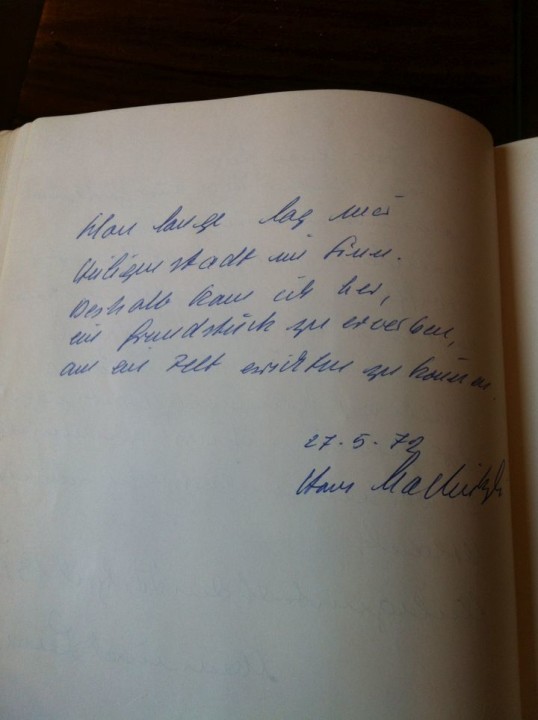 Schon lange lag mir
Heiligenstadt im Sinn.
Deshalb kam ich her,
ein Grundstück zu erwerben,
um ein Zelt errichten zu können.
27.5.72
Hans